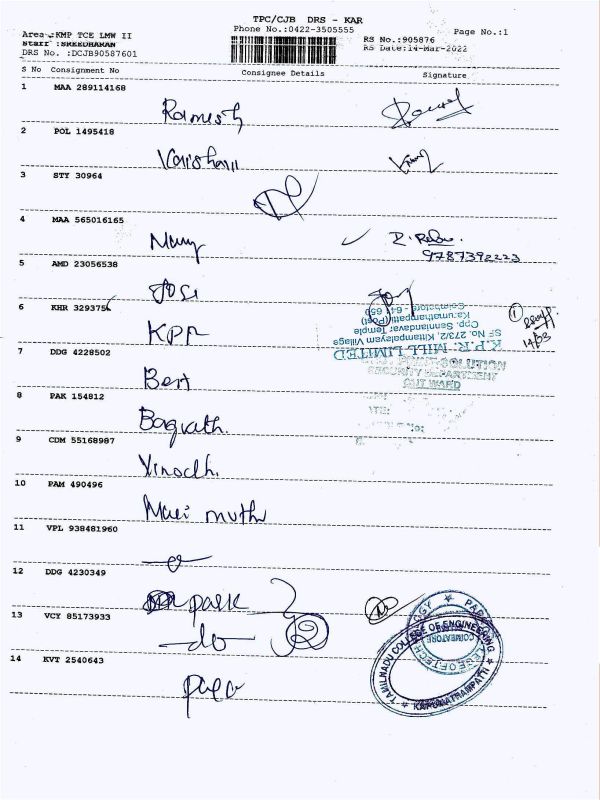 TPC/CJB DRS - KAR
Phone No.:0422-3505555
Page No.:1
Area :KMP TCE LMW II
Staff :SREEDHARAN
DRS No. :DCJB90587601
RS No.:905876
RS Date:14-Mar-2022
S No Consignment No Consignee Details Signature
1 MAA 289114168
Ramesh
2 POL 1495418
3 STY 30964
4 MAA 565016165
Many
R. Rabu.
9787392223
5 AMD 23056538
Josi
6 KHR 329375
KPR
14/03
K.P.R. MILL LIMITED
SF No. 273/2, Kittampalayam Village
Cpp. Samiandavar Temple
Karumathampatti (Post)
Coimbatore - 641 659
SOLUTION
SECURITY DEPARTMENT
OUT WARD
7 DDG 4228502
Bert
8 PAK 154812
Bagrath.
9 CDM 55168987
Vinodh.
10 PAM 490496
Mari muthu
11 VPL 938481960
12 DDG 4230349
park
13 VCY 85173933
-do-
14 KVT 2540643
TAMILNADU COLLEGE OF ENGINEERING
KARUMATHAMPATTI
COIMBATORE